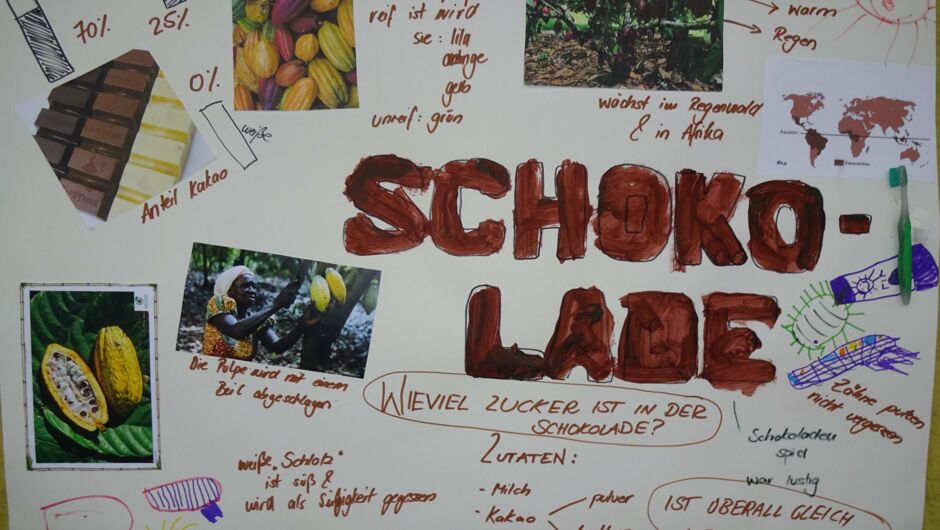 70% 25%
0%
weiße
Anteil Kakao
reif ist wird
sie: lila
orange
gelb
unreif: grün
wächst im Regenwald
& in Afrika
→ warm
→ Regen
Äquator
Kakaoanbau
SCHOKO-
LADE
Die Pulpe wird mit einem
Beil abgeschlagen
WIEVIEL ZUCKER IST IN DER
SCHOKOLADE?
Zähne putzen
nicht vergessen
Schokoladen
spiel
war lustig
weiße „Schlotz"
ist süß &
wird als Süßigkeit gegessen
ZUTATEN:
- Milch
- Kakao
pulver
IST ÜBERALL GLEICH